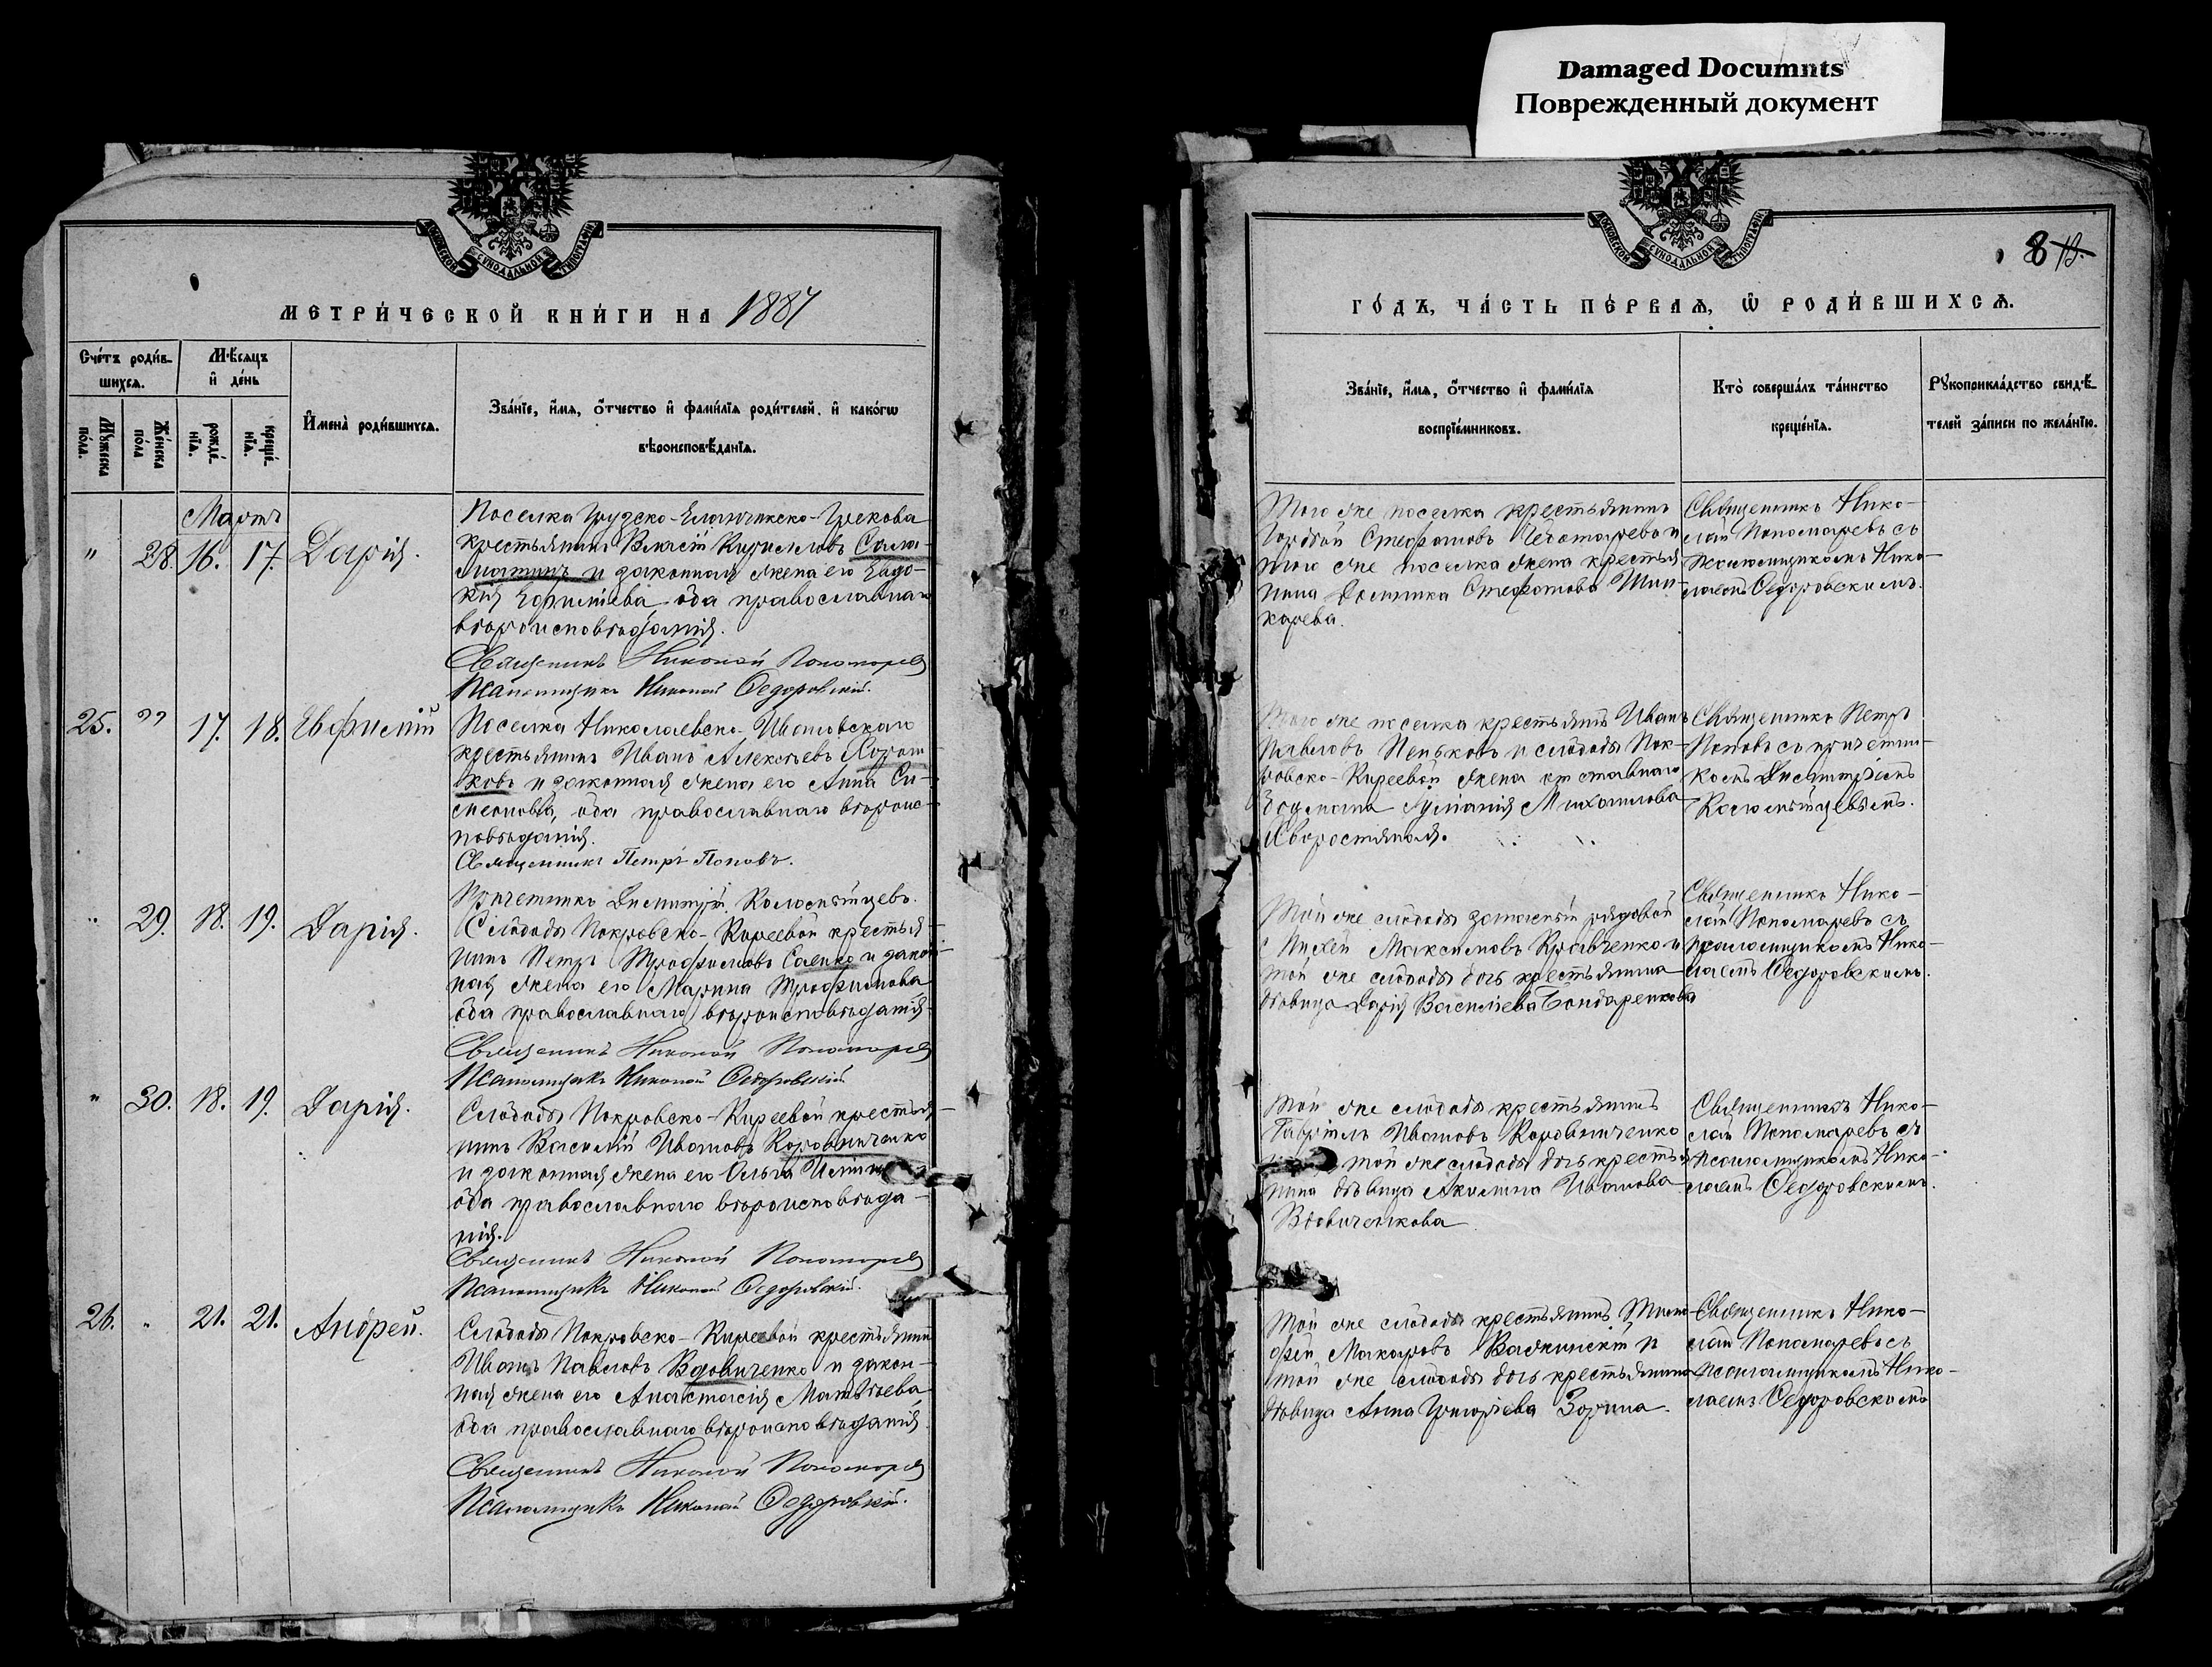 Damaged Documnts
Поврежденный документ
МОСКОВСКОЙ СѴНОДАЛЬНОЙ ТИПОГРАФІИ
МЕТРИ́ЧЕСКОЙ КНИ́ГИ НА 1887
Сче́тъ роди́в-
шихсѧ.
Мѣ́сѧцъ
и҆ де́нь
Мꙋ́жеска
по́ла.
Же́нска
по́ла
рожде́-
нїѧ.
креще́-
нїѧ.
И҆мена̀ роди́вшихсѧ.
Зва́нїе, и҆́мѧ, ѻ҆́тчество и҆ фами́лїѧ роди́телей, и҆ како́гѡ
вѣроисповѣ́данїѧ.
Мартъ
" 28. 16. 17. Дарія.
Поселка Грузско-Еланчикско-Грекова
крестьянинъ Власій Кирилловъ Сала-
матинъ и законная жена его Евдо-
кія Ефиміева оба православнаго
вѣроисповѣданія.
Священникъ Николай Пономаревъ
Псаломщикъ Николай Ѳедоровскій.
25. " 17. 18. Евфимій
Поселка Николаевско-Ивановскаго
крестьянинъ Иванъ Алексѣевъ
и законная жена его Анна Си-
меоновна, оба православнаго вѣроис-
повѣданія.
Священникъ Петръ Поповъ.
Причетникъ Димитрій Коломѣйцевъ.
" 29. 18. 19. Дарія.
Слободы Покровско-Киреевой крестья-
нинъ Петръ Трофимовъ Саенко и закон-
ная жена его Марина Трофимова
оба православнаго вѣроисповѣданія.
Священникъ Николай Пономаревъ
Псаломщикъ Николай Ѳедоровскій
" 30. 18. 19. Дарія.
Слободы Покровско-Киреевой крестья-
нинъ Василій Ивановъ Коровниченко
и законная жена его Ольга
оба православнаго вѣроисповѣда-
нія.
Священникъ Николай Пономаревъ
Псаломщикъ Николай Ѳедоровскій.
26. " 21. 21. Андрей.
Слободы Покровско-Киреевой крестьянинъ
Иванъ Павловъ Вдовиченко и закон-
ная жена его Анастасія Матвѣева
оба православнаго вѣроисповѣданія.
Священникъ Николай Пономаревъ
Псаломщикъ Николай Ѳедоровскій.
МОСКОВСКОЙ СѴНОДАЛЬНОЙ ТИПОГРАФІИ
8
ГО́ДЪ, ЧА́СТЬ ПЕ́РВАѦ, Ѡ҆ РОДИ́ВШИХСѦ.
Зва́нїе, и҆́мѧ, ѻ҆́тчество и҆ фами́лїѧ
воспрїе́мниковъ.
Кто̀ соверша́лъ та́инство
креще́нїѧ.
Рꙋкоприкла́дство свидѣ́-
телей за́писи по жела́нїю.
Того же поселка крестьянинъ
Гордѣй Стефановъ Чеботаревъ и
того же поселка жена крестья-
нина Домника Стефанова Шин-
карева.
Священникъ Нико-
лай Пономаревъ съ
псаломщикомъ Нико-
лаемъ Ѳедоровскимъ.
Того же поселка крестьянинъ Иванъ
Павловъ Пеньковъ и слободы Пок-
ровско-Киреевой жена
Іуліанія Михаилова
Хворостяная.
Священникъ Петръ
Поповъ съ причетни-
комъ Димитріемъ
Коломѣйцевымъ.
Той же слободы рядовой
Михей Максимовъ Кравченко и
той же слободы дочь крестьянина
дѣвица Дарія Васильева Бондаренкова
Священникъ Нико-
лай Пономаревъ съ
псаломщикомъ Нико-
лаемъ Ѳедоровскимъ.
Той же слободы крестьянинъ
Гавріилъ Ивановъ Коровниченко
той же слободы дочь крестья-
нина дѣвица Акилина Иванова
Вдовиченкова
Священникъ Нико-
лай Пономаревъ съ
псаломщикомъ Нико-
лаемъ Ѳедоровскимъ.
Той же слободы крестьянинъ Тимо-
фей Макаровъ и
той же слободы дочь крестьянина
дѣвица Анна Григорьева Зорина.
Священникъ Нико-
лай Пономаревъ съ
псаломщикомъ Нико-
лаемъ Ѳедоровскимъ